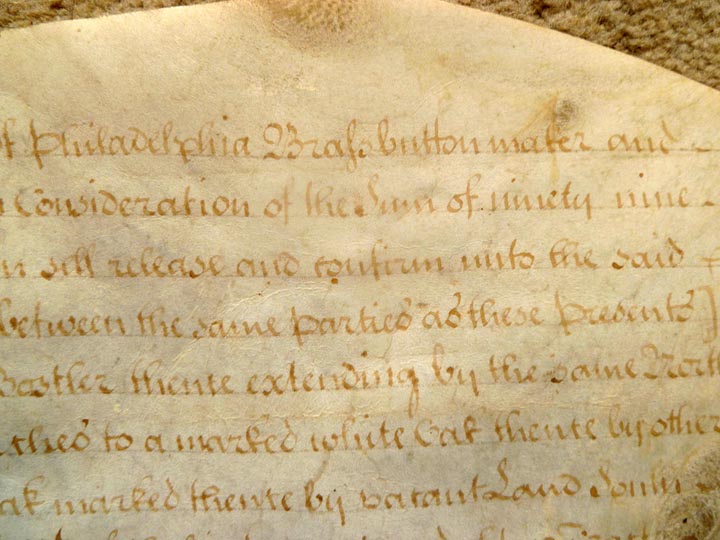 of Philadelphia Brass button maker and
Consideration of the Sum of ninety nine
sell release and confirm unto the said
between the same parties as these Presents
thence extending by the same North
ches to a marked white Oak thence by other
oak marked thence by vacant Land South